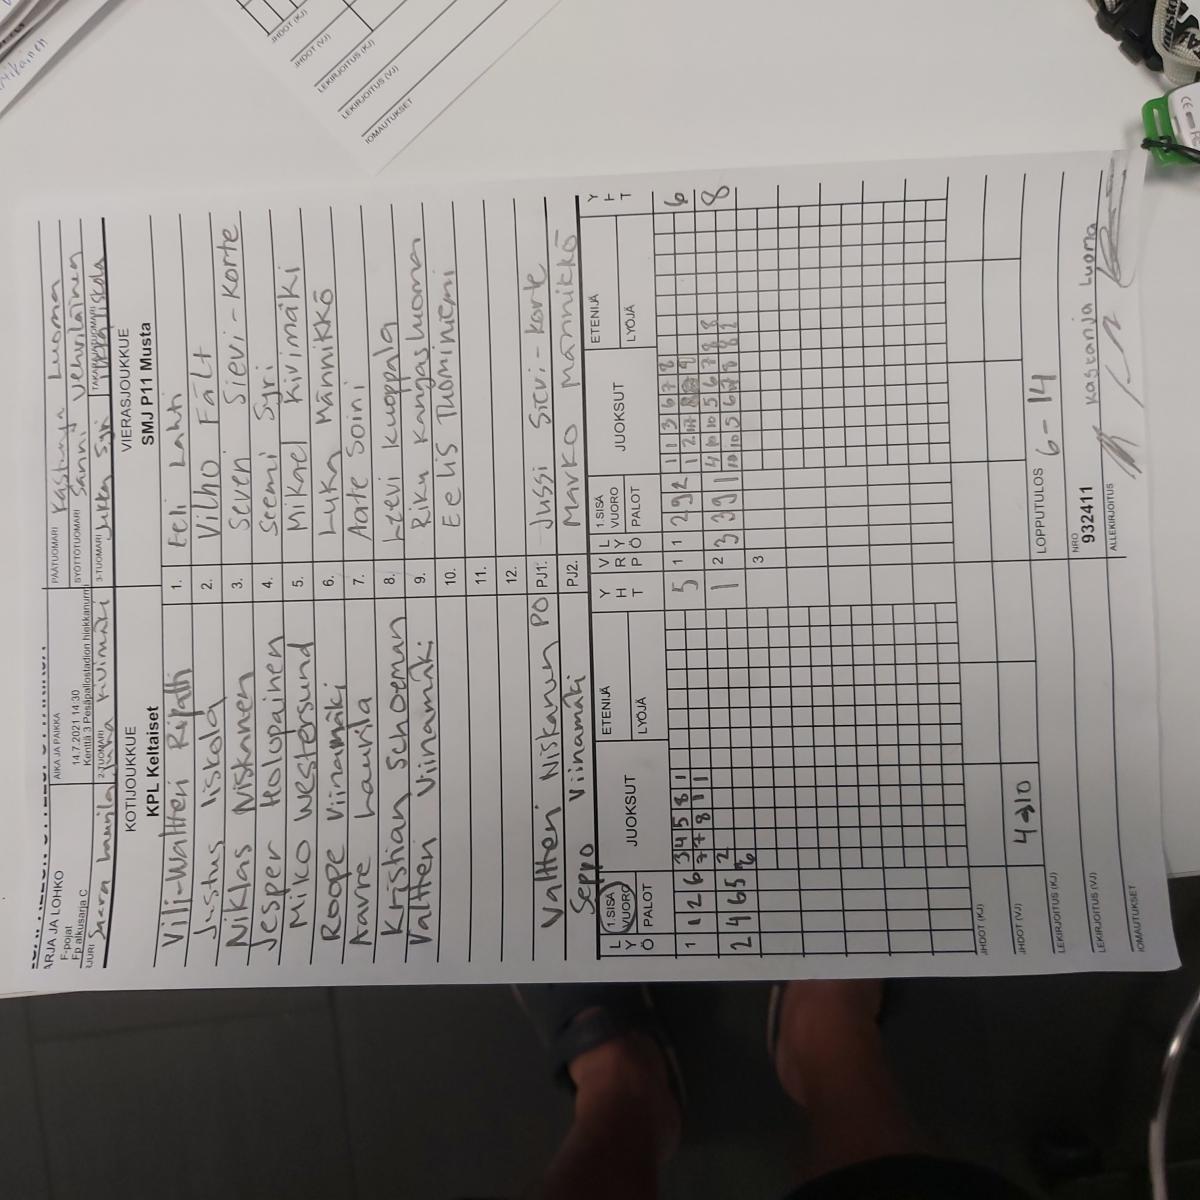 ARJA JA LOHKO
F-pojat
Fp alkusarja C
AIKA JA PAIKKA
14.7.2021 14:30
Kenttä 3 Pesäpallostadion hiekkanurmi
PÄÄTUOMARI Kastanja Luoma
SYÖTTÖTUOMARI Sanni Vehviläinen
2-TUOMARI
3-TUOMARI Jukka Syri
TAKARAJATUOMARI Iiskola
KOTIJOUKKUE
KPL Keltaiset
VIERASJOUKKUE
SMJ P11 Musta
Vilj-Waltteri Ripatti 1. Eeli Lahti
Justus Iiskola 2. Vilho Fält
Niklas Niskanen 3. Severi Sievi-Korte
Jesper Holopainen 4. Seemi Syri
Miko Westersund 5. Mikael Kivimäki
Roope Viinamäki 6. Luka Männikkö
Aavre Laurila 7. Aate Soini
Kristian Schoeman 8. Leevi Kuoppala
Valtteri Viinamäki 9. Riku Kangasluoma
10. Eelis Tuominiemi
11.
12.
Valtteri Niskanen PO PJ1. Jussi Sievi-Korte
Seppo Viinamäki PJ2. Marko Männikkö
L Y Ö
1.SISÄ VUORO
PALOT
JUOKSUT
ETENIJÄ
LYÖJÄ
Y H T
V R P
L Y Ö
1.SISÄ VUORO
PALOT
JUOKSUT
ETENIJÄ
LYÖJÄ
Y H T
1 1 2 6 3 4 5 8 1 5 1 1 2 9 2 1 1 3 6 7 8 6
7 7 8 1 1
2 4 6 5 2 1 2 3 3 9 1 4 10 10 5 6 7 8 8 8
6 10 10 5 6 7 8 8 2
3
JHDOT (KJ)
JHDOT (VJ) 4→10
LOPPUTULOS 6-14
LEKIRJOITUS (KJ)
NRO
932411
Kastanja Luoma
LEKIRJOITUS (VJ)
ALLEKIRJOITUS
IOMAUTUKSET
JHDOT (KJ)
JHDOT (VJ)
LEKIRJOITUS (KJ)
LEKIRJOITUS (VJ)
IOMAUTUKSET